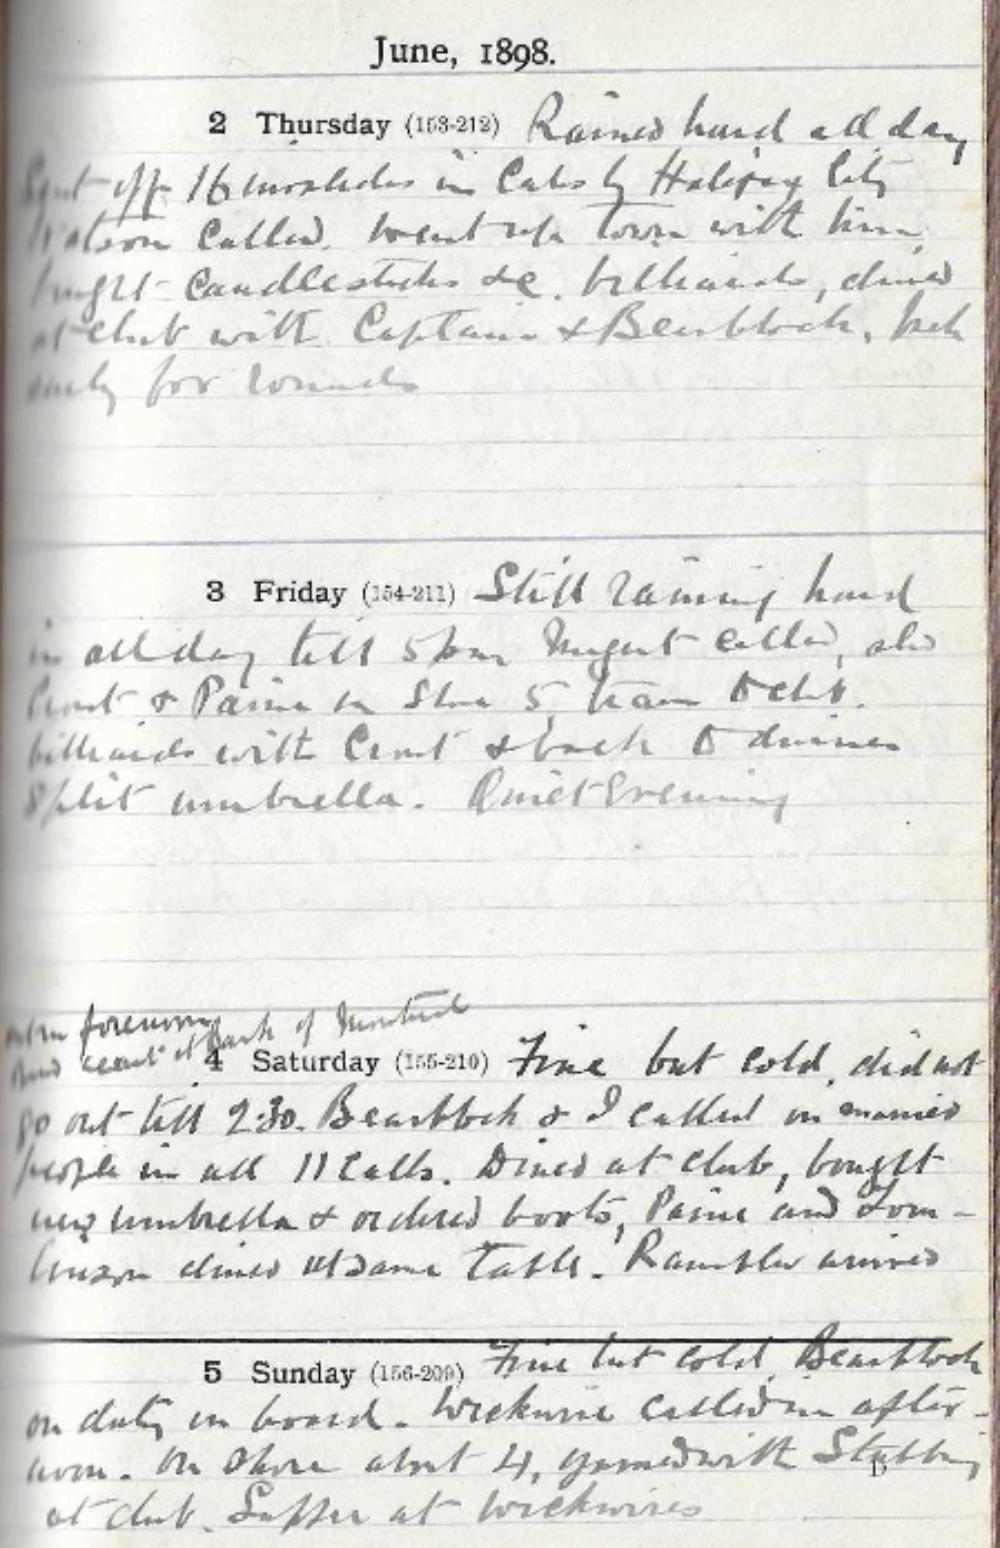 June, 1898.
2 Thursday (153-212) Rained hard all day
Sent off 16 in Cabs by Halifax City
Watson called. Went up town with him,
bought candlesticks &c. billiards, dined
at club with Captain & Bearblock. back
early for rounds
3 Friday (154-211) Still raining hard
in all day till 5 pm Nugent called, also
& Paine on Shore 5, tram to club.
billiards with & back to dinner
Split umbrella. Quiet Evening
forenoon
at Bank of Montreal
4 Saturday (155-210) Fine but cold, did not
go out till 2.30. Bearblock & I called on married
people in all 11 Calls. Dined at club, bought
new umbrella & ordered boots, Paine and Tom-
linson dined at same table. Rambler arrived
5 Sunday (156-209) Fine but cold, Bearblock
on duty on board. Wickwire called in after-
noon. On Shore about 4, yarned with Stubbing
at club. Supper at Wickwires